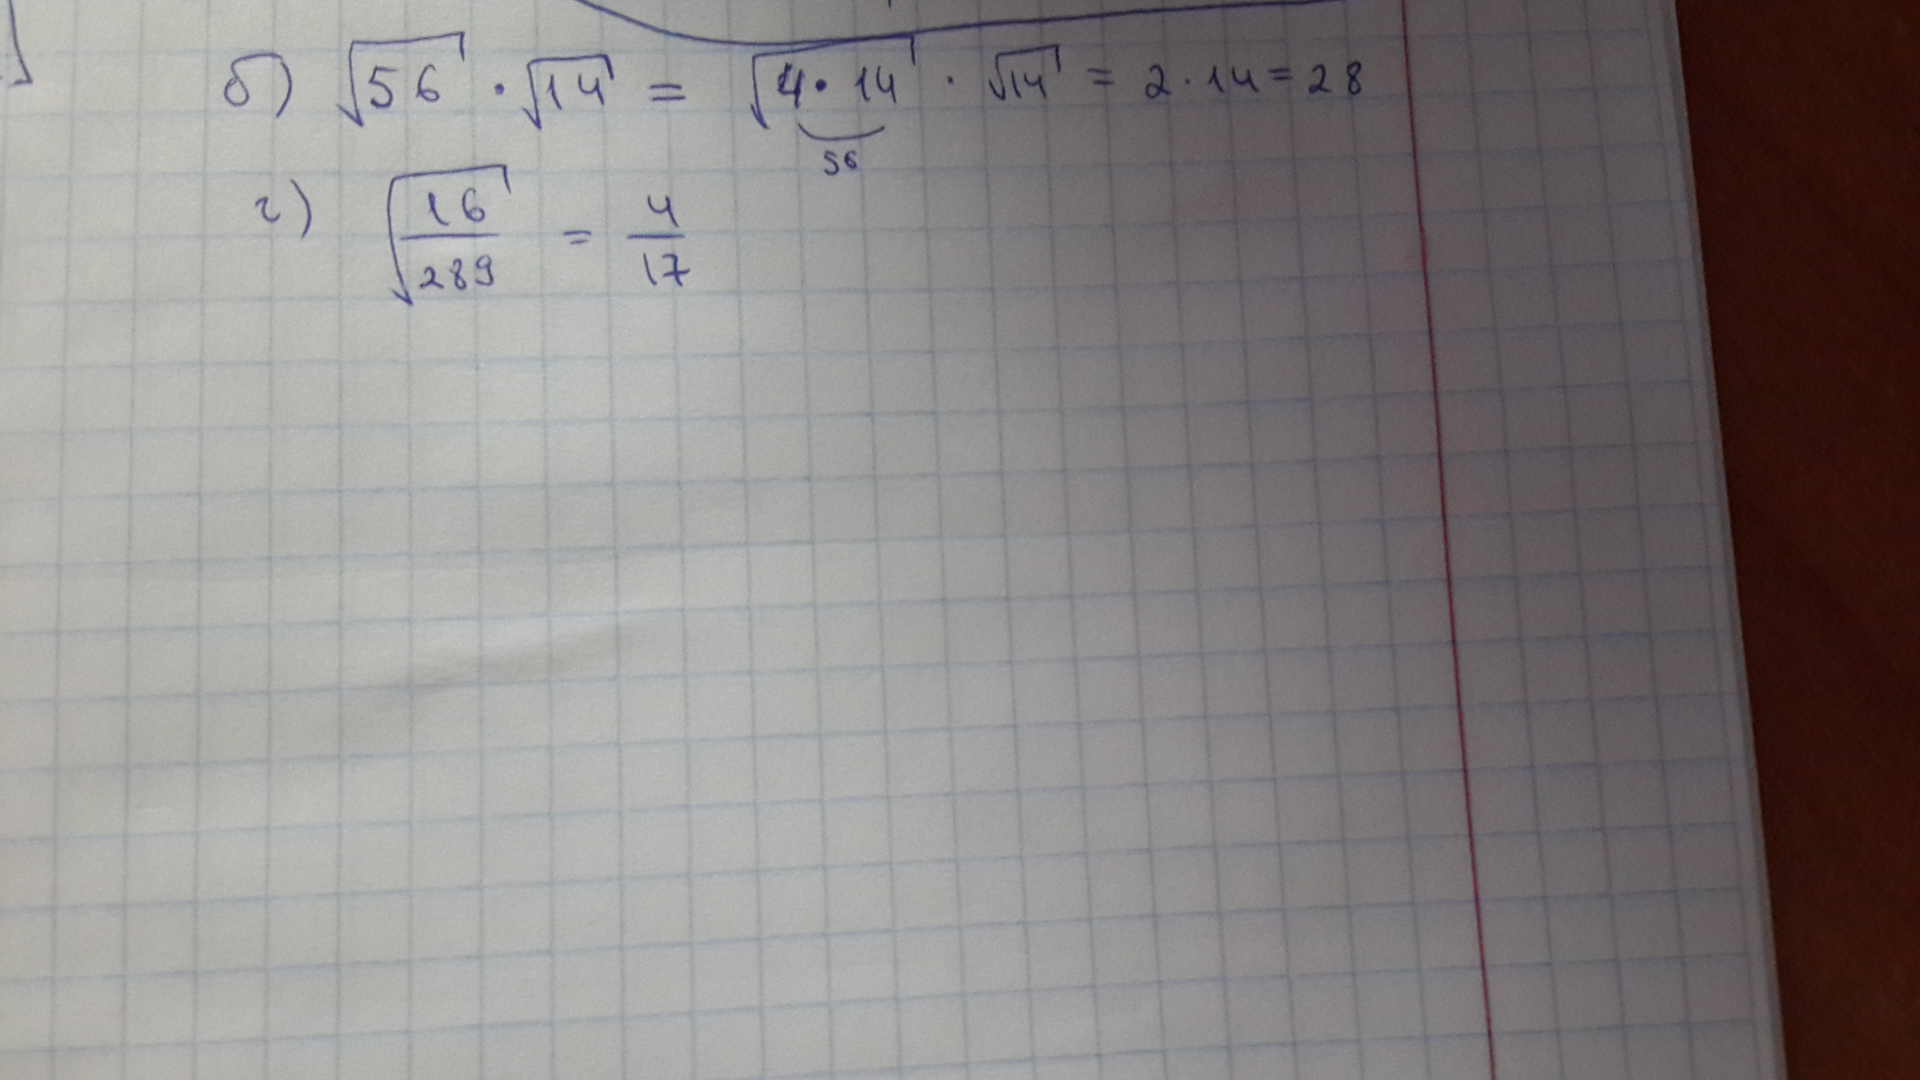 б) √56 · √14 = √4 · 14 · √14 = 2 · 14 = 28
56
г) √16/289 = 4/17